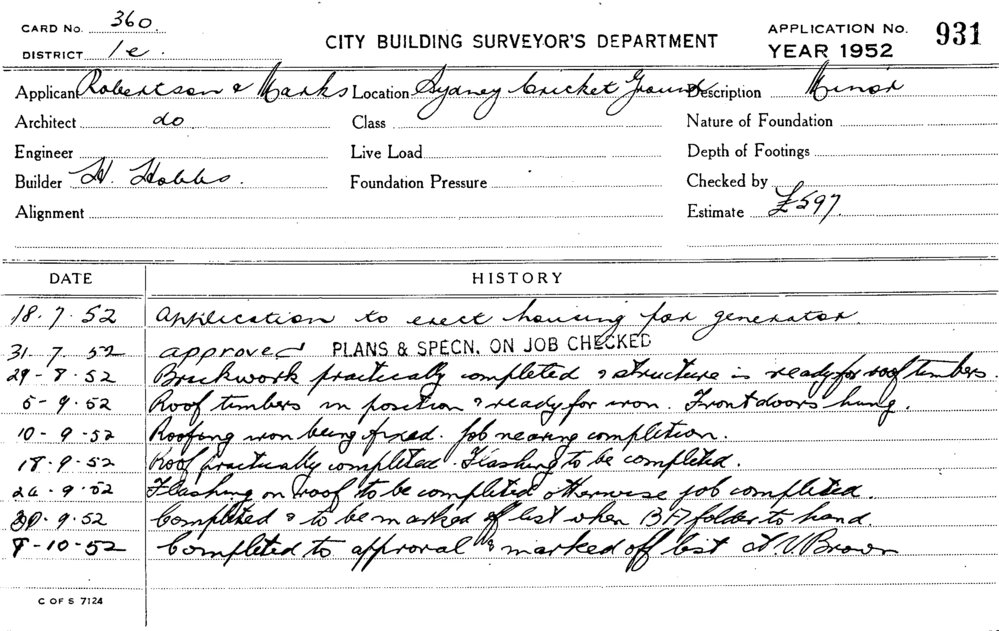 CARD No. 360.
DISTRICT 1e.
CITY BUILDING SURVEYOR'S DEPARTMENT
APPLICATION No. 931
YEAR 1952
Applicant Robertson & Marks Location Sydney Cricket Ground Description Minor
Architect do Class Nature of Foundation
Engineer Live Load Depth of Footings
Builder H. Hobbs. Foundation Pressure Checked by
Alignment Estimate £597
DATE HISTORY
18.7.52 Application to erect housing for generator.
31.7.52 approved PLANS & SPECN. ON JOB CHECKED
29-8.52 Brickwork practically completed & structure is ready for roof timbers.
5-9.52 Roof timbers in position & ready for iron. Front doors hung.
10-9-52 Roofing iron being fixed. Job nearing completion.
18.9.52 Roof practically completed. Flashing to be completed.
-9.52 Flashing on roof to be completed otherwise job completed.
30.9.52 Completed & to be marked off list when folder to hand.
-10-52 Completed to approval & marked off list Brown
C OF S 7124